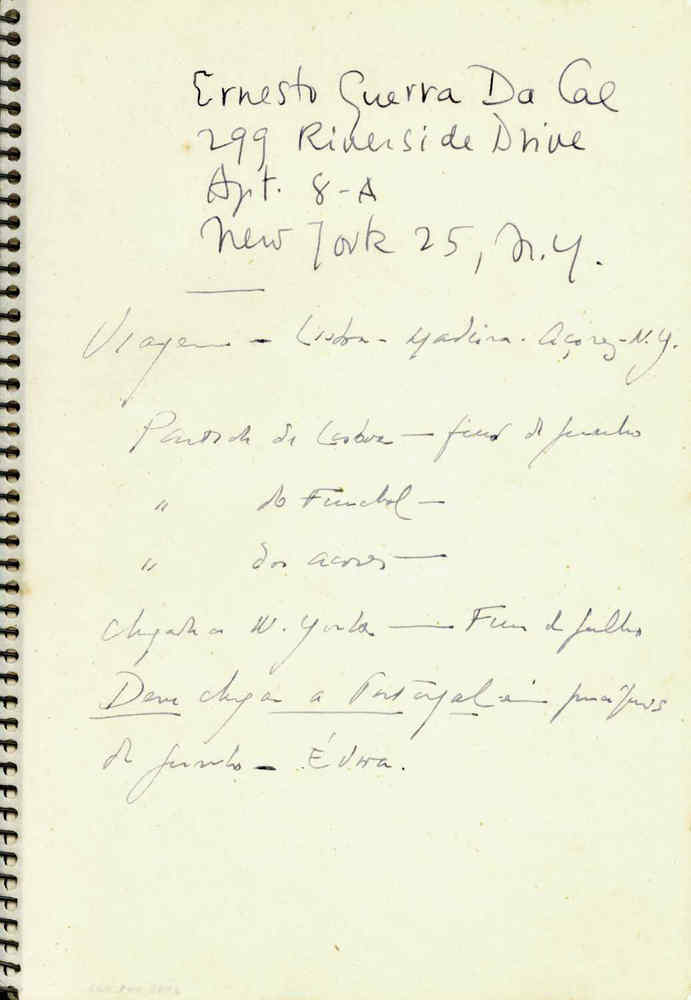 Ernesto Guerra Da Cal
299 Riverside Drive
Apt. 8-A
New York 25, N.Y.
Viagem - Lisboa - Madeira - Açores - N.Y.
Partida de Lisboa — fins de Junho
" do Funchal —
" dos Açores —
Chegada a N. York — Fins de Julho
Deve chegar a Portugal em princípios
de Junho - Évora.